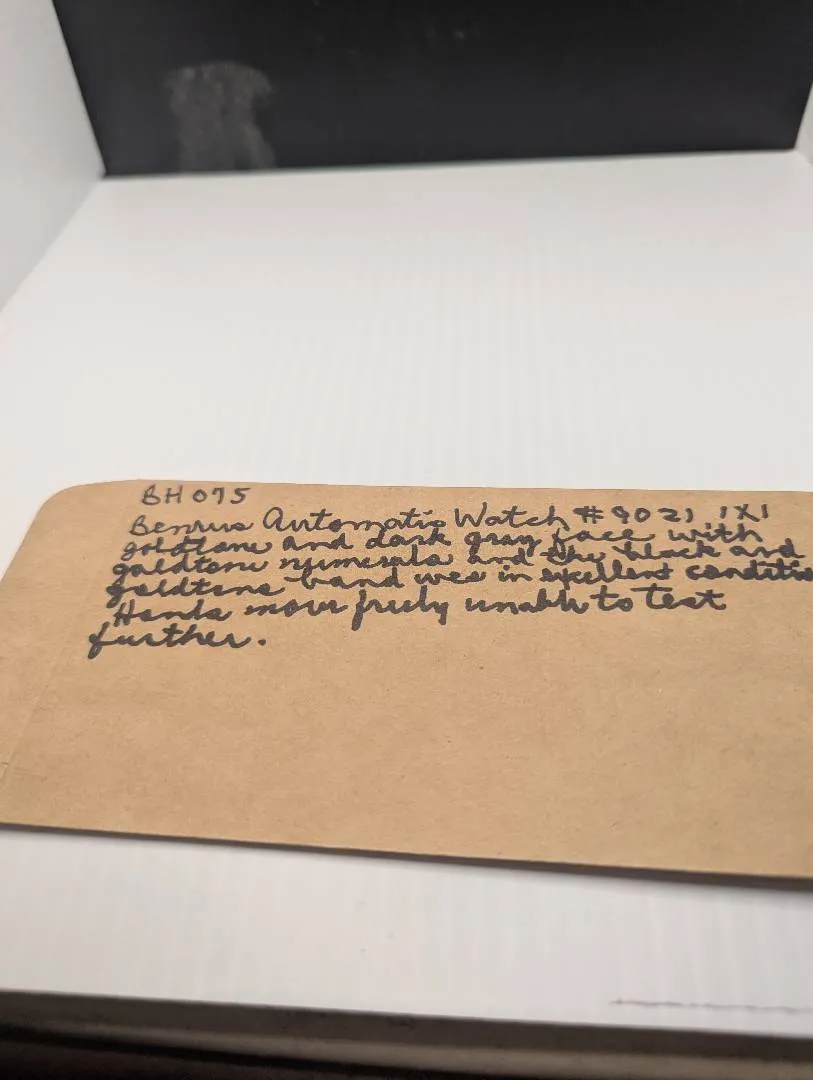 BH 075
Benrus Automatic Watch # 9021 1X1
goldtone and dark gray face with
goldtone numerals and the black and
goldtone band was in excellent conditio
Hands move freely unable to test
further.